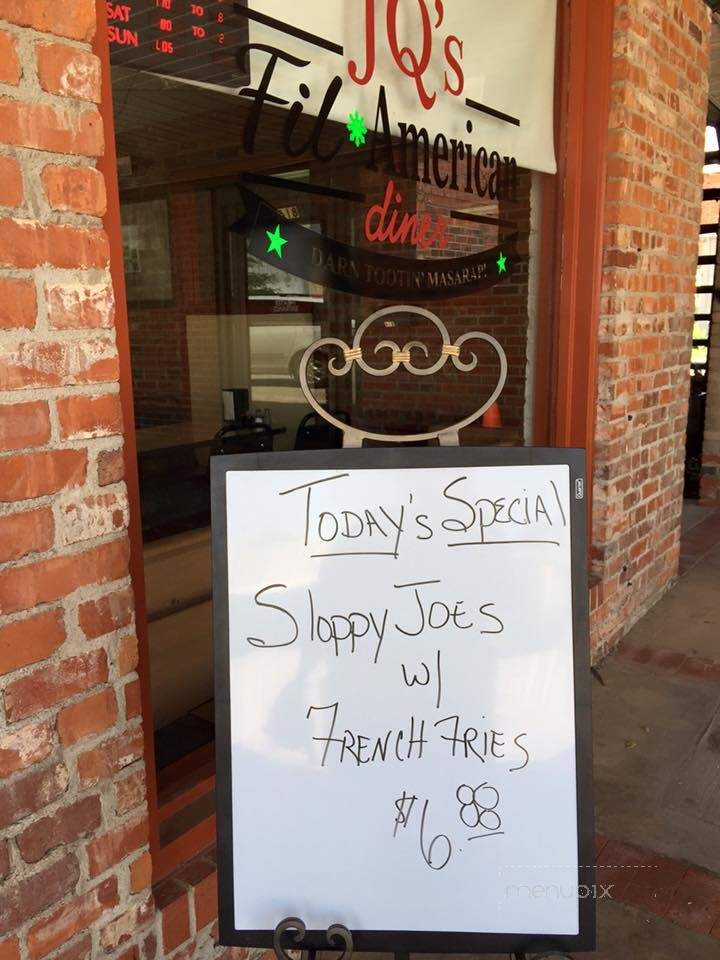 SAT TO 8
SUN TO 2
JQ's
Fil American
diner
DARN TOOTIN' MASARAP!
TODAY'S SPECIAL
Sloppy JOES
w/
FRENCH FRIES
$6.88
menupix